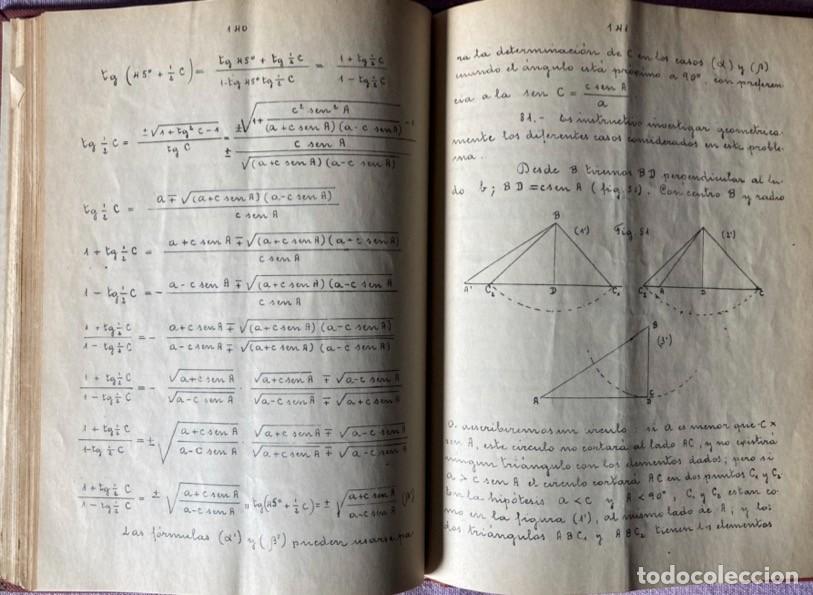 140
tg (45° + ½ C) = (tg 45° + tg ½ C) / (1 - tg 45° tg ½ C) = (1 + tg ½ C) / (1 - tg ½ C)
tg ½ C = (±√(1 + tg² C) - 1) / tg C = (±√(1 + c² sen² A / ((a + c sen A) (a - c sen A))) - 1) / (± c sen A / √((a + c sen A) (a - c sen A)))
tg ½ C = (a ∓ √((a + c sen A) (a - c sen A))) / (c sen A)
1 + tg ½ C = (a + c sen A ∓ √((a + c sen A) (a - c sen A))) / (c sen A)
1 - tg ½ C = - (a - c sen A ∓ √((a + c sen A) (a - c sen A))) / (c sen A)
(1 + tg ½ C) / (1 - tg ½ C) = - (a + c sen A ∓ √((a + c sen A) (a - c sen A))) / (a - c sen A ∓ √((a + c sen A) (a - c sen A)))
(1 + tg ½ C) / (1 - tg ½ C) = - √(a + c sen A) / √(a - c sen A) · (√(a + c sen A) ∓ √(a - c sen A)) / (√(a - c sen A) ∓ √(a + c sen A))
(1 + tg ½ C) / (1 - tg ½ C) = ± √((a + c sen A) / (a - c sen A)) · (√(a + c sen A) ∓ √(a - c sen A)) / (√(a + c sen A) ∓ √(a - c sen A))
(1 + tg ½ C) / (1 - tg ½ C) = ± √((a + c sen A) / (a - c sen A)) ,, tg (45° + ½ C) = ± √((a + c sen A) / (a - c sen A)) (β')
Las fórmulas (α') y (β') pueden usarse pa
141
ra la determinación de C en los casos (α) y (β)
cuando el ángulo está próximo a 90°. con preferen
cia a la sen C = (c sen A) / a
81.- Es instructivo investigar geométrica-
mente los diferentes casos considerados en este proble-
ma.
Desde B tiremos BD perpendicular al la-
do b; BD = c sen A (fig. 51). Con centro B y radio
B
(1')
Fig. 51
(2')
A'
C₂
D
C₁
C₂
A
D
C
B
(3')
A
C
D
a describiremos un círculo: si a es menor que c ×
sen A, este círculo no cortará al lado AC, y no existirá
ningun triángulo con los elementos dados; pero si
a > c sen A el círculo cortará AC en dos puntos C₁ y C₂
Con la hipótesis a < c y A < 90°, C₁ y C₂ estan co-
mo en la figura (1'), al mismo lado de A; y los
dos triángulos ABC₁ y ABC₂ tienen los elementos
todocoleccion